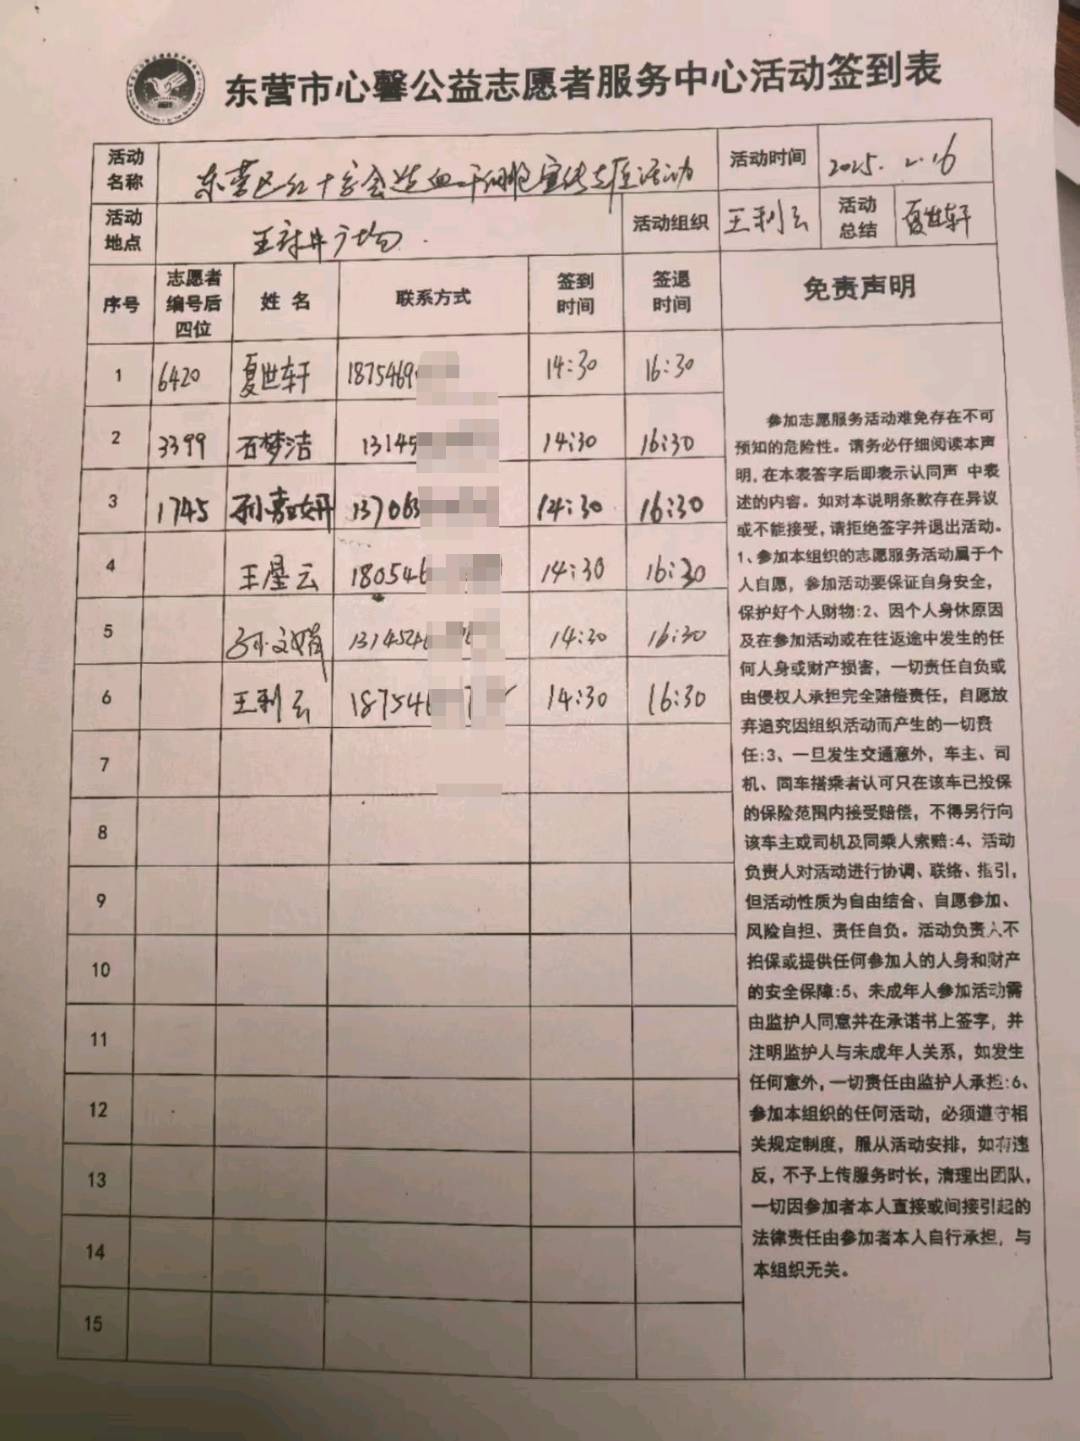 东营市心馨公益志愿者服务中心活动签到表
活动名称 东营区红十字会造血干细胞宣传志愿活动 活动时间 2025.2.16
活动地点 王府井广场. 活动组织 王利云 活动总结 夏世轩
序号 志愿者编号后四位 姓名 联系方式 签到时间 签退时间 免责声明
1 6420 夏世轩 1875469 14:30 16:30
2 3399 石梦洁 13145 14:30 16:30
3 1745 孙嘉妍 137063 14:30 16:30
4 王星云 180546 14:30 16:30
5 孙文娟 13145246 14:30 16:30
6 王利云 187546 14:30 16:30
7
8
9
10
11
12
13
14
15
参加志愿服务活动难免存在不可
预知的危险性。请务必仔细阅读本声
明,在本表签字后即表示认同声 中表
述的内容。如对本说明条款存在异议
或不能接受,请拒绝签字并退出活动。
1、参加本组织的志愿服务活动属于个
人自愿，参加活动要保证自身安全，
保护好个人财物:2、因个人身休原因
及在参加活动或在往返途中发生的任
何人身或财产损害，一切责任自负或
由侵权人承担完全赔偿责任，自愿放
弃追究因组织活动而产生的一切责
任:3、一旦发生交通意外，车主、司
机、同车搭乘者认可只在该车已投保
的保险范围内接受赔偿，不得另行向
该车主或司机及同乘人索赔:4、活动
负责人对活动进行协调、联络、指引，
但活动性质为自由结合、自愿参加、
风险自担、责任自负。活动负责人不
担保或提供任何参加人的人身和财产
的安全保障:5、未成年人参加活动需
由监护人同意并在承诺书上签字，并
注明监护人与未成年人关系，如发生
任何意外,一切责任由监护人承担:6、
参加本组织的任何活动，必须遵守相
关规定制度，服从活动安排，如有违
反，不予上传服务时长，清理出团队，
一切因参加者本人直接或间接引起的
法律责任由参加者本人自行承担，与
本组织无关。